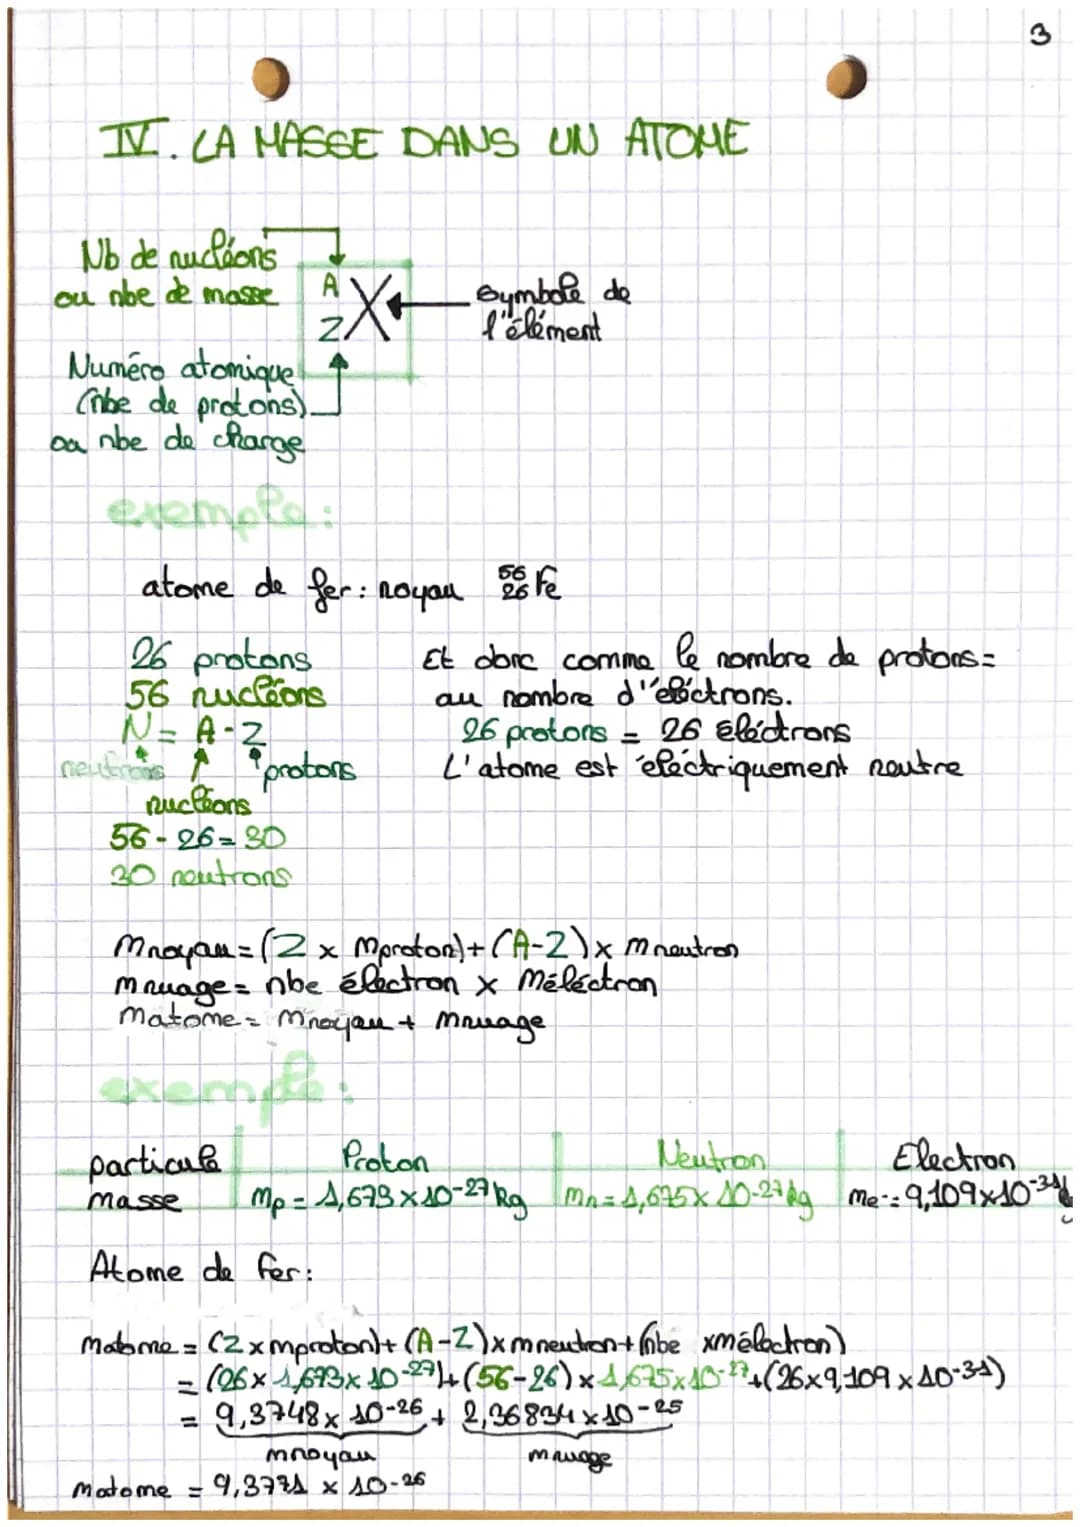 3
IV. LA MASSE DANS UN ATOME
Nb de nucléons
ou nbe de masse
A
Z
X
Symbole de
l'élément
Numéro atomique
(nbe de protons)
ou nbe de charge
exemple:
atome de fer: noyau 56 26 Fe
26 protons
56 nucléons
N = A - Z
neutrons
protons
nucléons
56 - 26 = 30
30 neutrons
Et donc comme le nombre de protons =
au nombre d'éléctrons.
26 protons = 26 éléctrons
L'atome est éléctriquement neutre
Mnoyau = (Z x mproton) + (A-Z) x mneutron
mnuage = nbe électron x méléctron
matome = mnoyau + mnuage
exemple:
particule Proton Neutron Electron
masse mp = 1,673 x 10-27 kg mn = 1,675 x 10-27 kg me = 9,109 x 10-31
Atome de fer:
matome = (Z x mproton) + (A-Z) x mneutron + (nbe x mélectron)
= (26 x 1,673 x 10-27) + (56-26) x 1,675 x 10-27 + (26 x 9,109 x 10-31)
= 9,3748 x 10-26 + 2,36834 x 10-25
mnoyau mnuage
matome = 9,3771 x 10-26